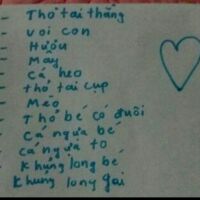 - Thỏ tai thẳng
- Voi con
- Hươu
- Mây
- Cá heo
- thỏ tai cụp
- Mèo
- Thỏ bé có đuôi
- Cá ngựa bé
- cá ngựa to
- khủng long bé
- khủng long gai